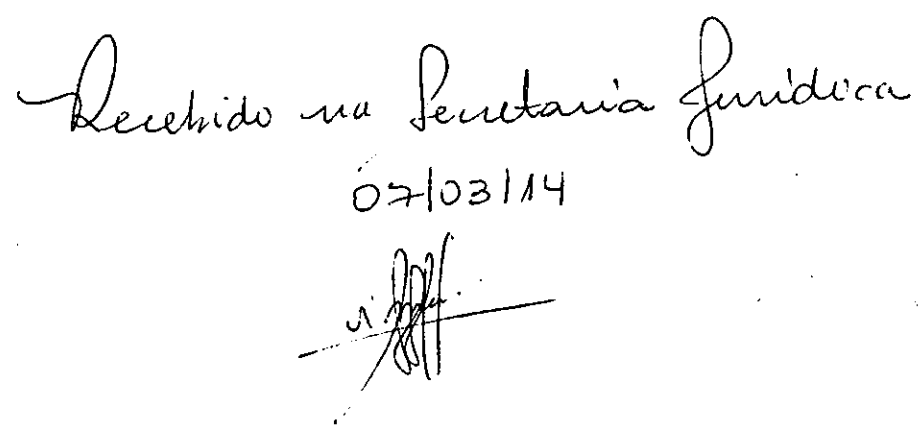 Recebido na Secretaria Jurídica
07/03/14